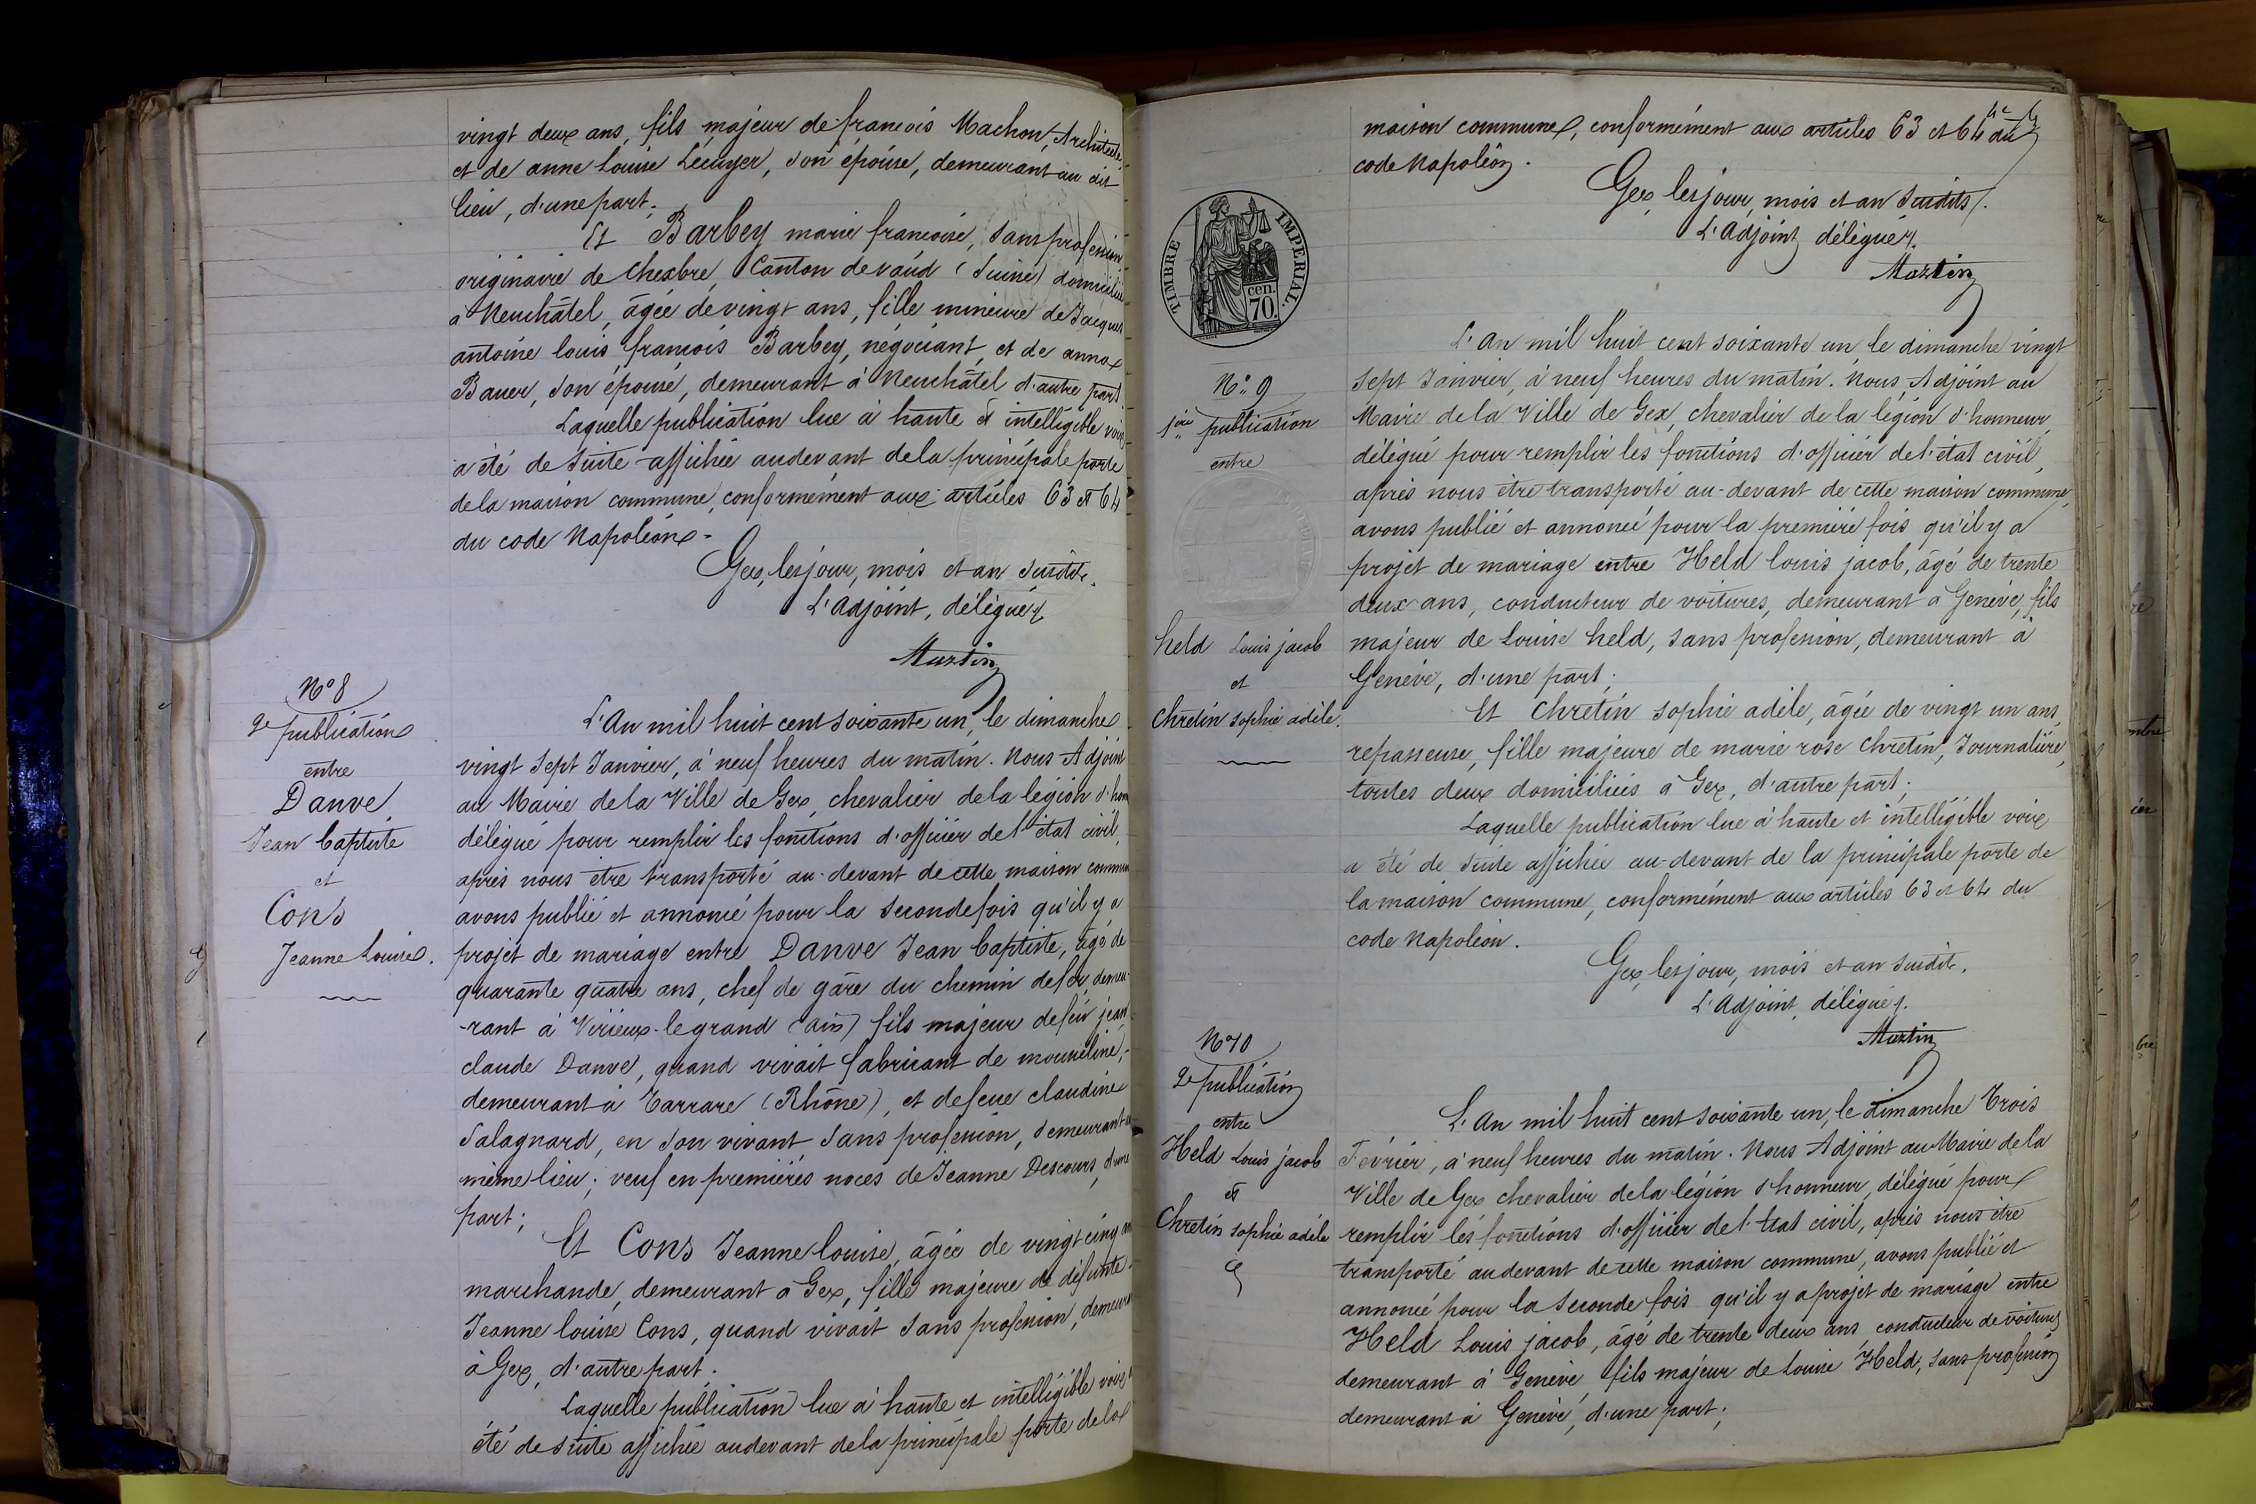 vingt deux ans, fils majeur de françois Machon, Architecte,
et de anne Louise Lécuyer, son épouse, demeurant au dit
lieu, d'une part;
Et Barbey marie françoise, sans profession
originaire de Chexbre, Canton de vaud (Suisse) domiciliée
à Neuchâtel, âgée de vingt ans, fille mineure de Jacques
antoine louis françois Barbey, négociant, et de anna
Bauer, son épouse, demeurant à Neuchâtel d'autre part
Laquelle publication lue à haute et intelligible voix
a été de suite affichée audevant de la principale porte
de la maison commune, conformément aux articles 63 et 64
du code Napoléon.
Gex, les jour, mois et an susdits.
L'Adjoint, délégué,
Martin
N° 8
2e publication
entre
Danve
Jean baptiste
et
Cons
Jeanne Louise.
L'An mil huit cent soixante un, le dimanche
vingt sept Janvier, à neuf heures du matin. Nous Adjoint
au Maire de la Ville de Gex, chevalier de la légion d'hon
délégué pour remplir les fonctions d'officier de l'état civil,
après nous être transporté au-devant de cette maison commun
avons publié et annoncé pour la seconde fois qu'il y a
projet de mariage entre Danve Jean baptiste, âgé de
quarante quatre ans, chef de gare du chemin de fer, demeu-
-rant à Virieux-le grand (ain) fils majeur de feu jean
claude Danve, quand vivait fabricant de mousseline,
demeurant à Tarrare (Rhône), et de feue claudine
Salagnard, en son vivant sans profession, demeurant au
même lieu; veuf en premières noces de Jeanne Descours, d'une
part;
Et Cons Jeanne louise, âgée de vingt cinq ans
marchande, demeurant à Gex, fille majeure de défunte
Jeanne louise Cons, quand vivait sans profession, demeura
à Gex, d'autre part;
Laquelle publication lue à haute et intelligible voix a
été de suite affichée audevant de la principale porte de la
maison commune, conformément aux articles 63 et 64 du
code Napoléon.
Gex, les jour, mois et an susdits.
L'Adjoint délégué,
Martin
TIMBRE IMPERIAL.
cen.
70.
N° 9
1ère publication
entre
held Louis jacob
et
Chretin sophie adèle.
L'An mil huit cent soixante un, le dimanche vingt
Sept Janvier, à neuf heures du matin. Nous, Adjoint au
Maire de la Ville de Gex, chevalier de la légion d'honneur,
délégué pour remplir les fonctions d'officier de l'état civil,
après nous être transporté au-devant de cette maison commune,
avons publié et annoncé pour la première fois qu'il y a
projet de mariage entre Held louis jacob, âgé de trente
deux ans, conducteur de voitures, demeurant à Genève, fils
majeur de Louise held, sans profession, demeurant à
Genève, d'une part;
Et Chretin sophie adèle, âgée de vingt un ans,
repasseuse, fille majeure de marie rose Chretin, Journalière,
toutes deux domiciliées à Gex, d'autre part;
Laquelle publication lue à haute et intelligible voix
a été de suite affichée au-devant de la principale porte de
la maison commune, conformément aux articles 63 et 64 du
code Napoléon.
Gex, les jour, mois et an susdit.
L'Adjoint, délégué,
Martin
N° 10
2e publication
entre
Held Louis jacob
et
Chretin sophie adèle
L'An mil huit cent soixante un, le dimanche Trois
Février, à neuf heures du matin. Nous Adjoint au Maire de la
Ville de Gex chevalier de la légion d'honneur, délégué pour
remplir les fonctions d'officier de l'état civil, après nous être
transporté audevant de cette maison commune, avons publié et
annoncé pour la seconde fois qu'il y a projet de mariage entre
Held Louis jacob, âgé de trente deux ans, conducteur de voitures
demeurant à Genève, fils majeur de Louise Held, sans profession
demeurant à Genève, d'une part;